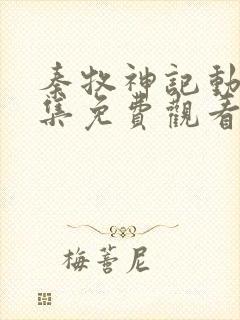 秦牧神記動
集免費觀看
梅菩尼